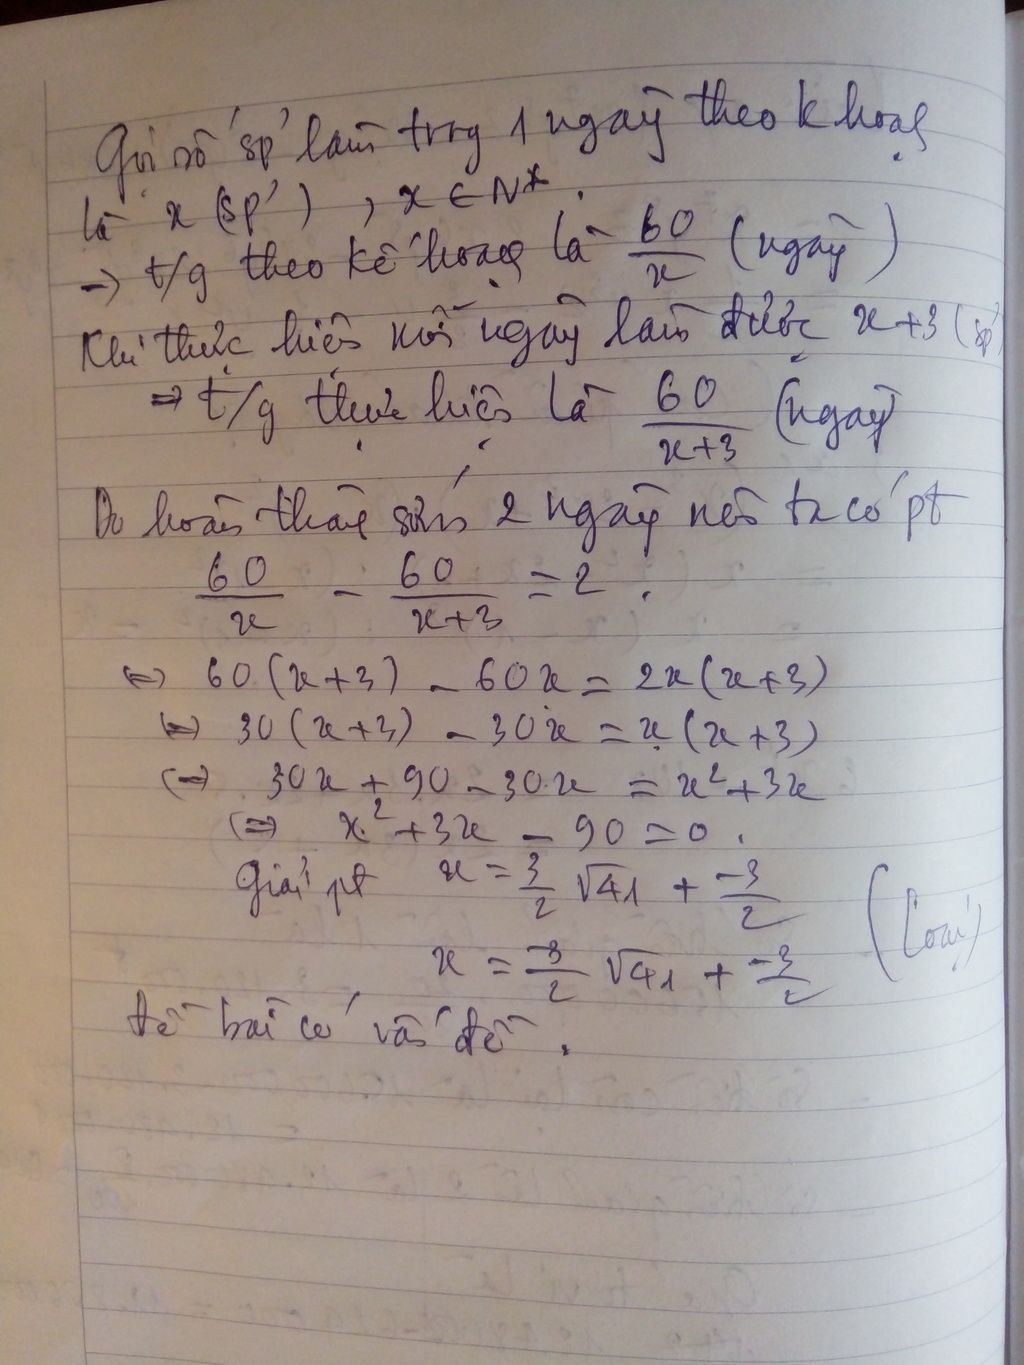 Gọi số sp' làm trog 1 ngày theo k hoạch
là x (sp'), x ∈ N*.
→ t/g theo kế hoạch là 60/x (ngày)
Khi thực hiện mỗi ngày làm được x+3 (sp'
⇒ t/g thực hiện là 60/(x+3) (ngày)
Do hoàn thành sớm 2 ngày nên ta có pt
60/x - 60/(x+3) = 2.
⇔ 60(x+3) - 60x = 2x(x+3)
⇔ 30(x+3) - 30x = x(x+3)
⇔ 30x + 90 - 30x = x² + 3x
⇔ x² + 3x - 90 = 0.
Giải pt x = 3/2 √41 + -3/2
x = -3/2 √41 + -3/2 (loại)
đề bài có vấn đề.